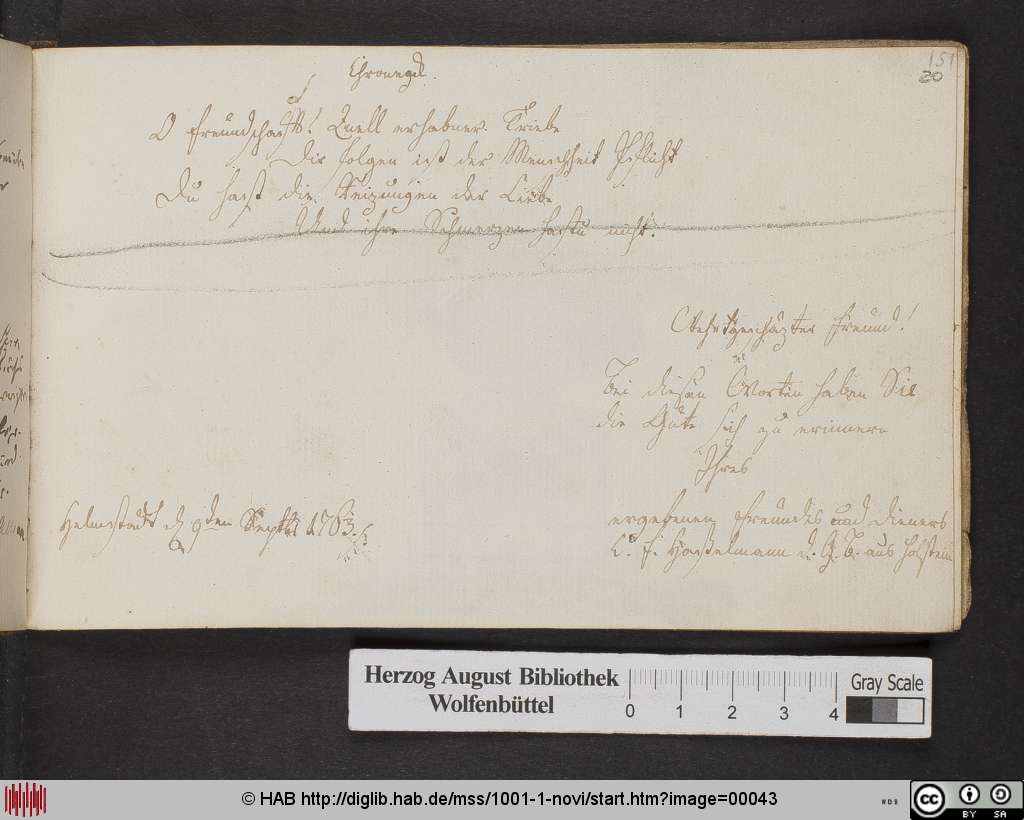 Chronegk.
151
20
O Freundschafft! Quell erhabner Triebe
Dir folgen ist der Menschheit Pflicht
Du hast die Reizungen der Liebe
Und ihre Schmerzen hastu nicht.
Freund!
Bei diesen Worten haben Sie
die Güte sich zu erinnern
Ihres
Helmstadt d 9ten Septbr 1763.
ergebenen Freundes und Dieners
L. F. Hasselmann d. G. B. aus Holstein
Herzog August Bibliothek
Wolfenbüttel
0 1 2 3 4
Gray Scale
© HAB http://diglib.hab.de/mss/1001-1-novi/start.htm?image=00043
cc BY SA